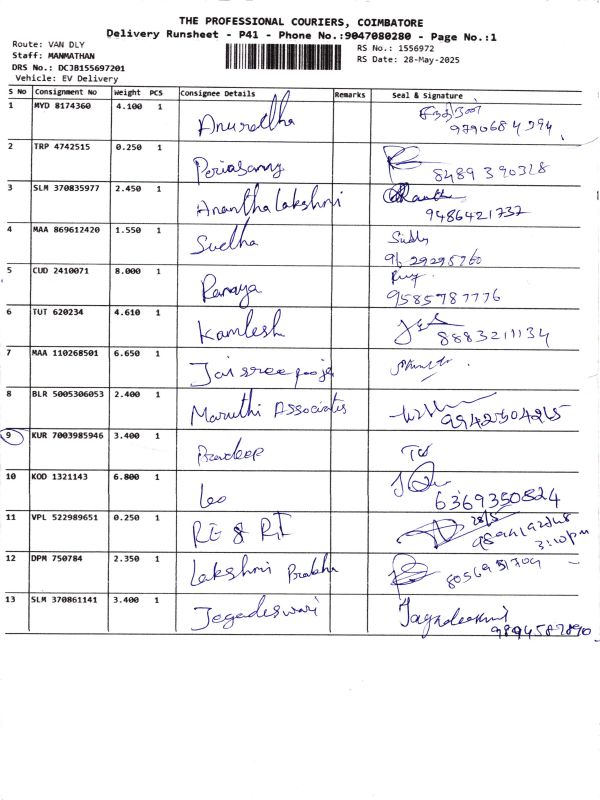 THE PROFESSIONAL COURIERS, COIMBATORE
Delivery Runsheet - P41 - Phone No.:9047080280 - Page No.:1
Route: VAN DLY
Staff: MANMATHAN
DRS No.: DCJB155697201
Vehicle: EV Delivery
RS No.: 1556972
RS Date: 28-May-2025
S No Consignment No Weight PCS Consignee Details Remarks Seal & Signature
1 MYD 8174360 4.100 1 Anuradha
2 TRP 4742515 0.250 1 Periasamy 8489390328
3 SLM 370835977 2.450 1 Anantha lakshmi 9486421737
4 MAA 869612420 1.550 1 Sudha 9629295760
5 CUD 2410071 8.000 1 Ramya 9585787776
6 TUT 620234 4.610 1 Kamlesh 8883211134
7 MAA 110268501 6.650 1 Jaisree pooja
8 BLR 5005306053 2.400 1 Maruthi Associates 9942504215
9 KUR 7003985946 3.400 1 Pradeep
10 KOD 1321143 6.800 1 Leo 6369350824
11 VPL 522989651 0.250 1 RE & RI 28/5 3:10pm
12 DPM 750784 2.350 1 Lakshmi Prabha
13 SLM 370861141 3.400 1 Jegadeswari 9894587890